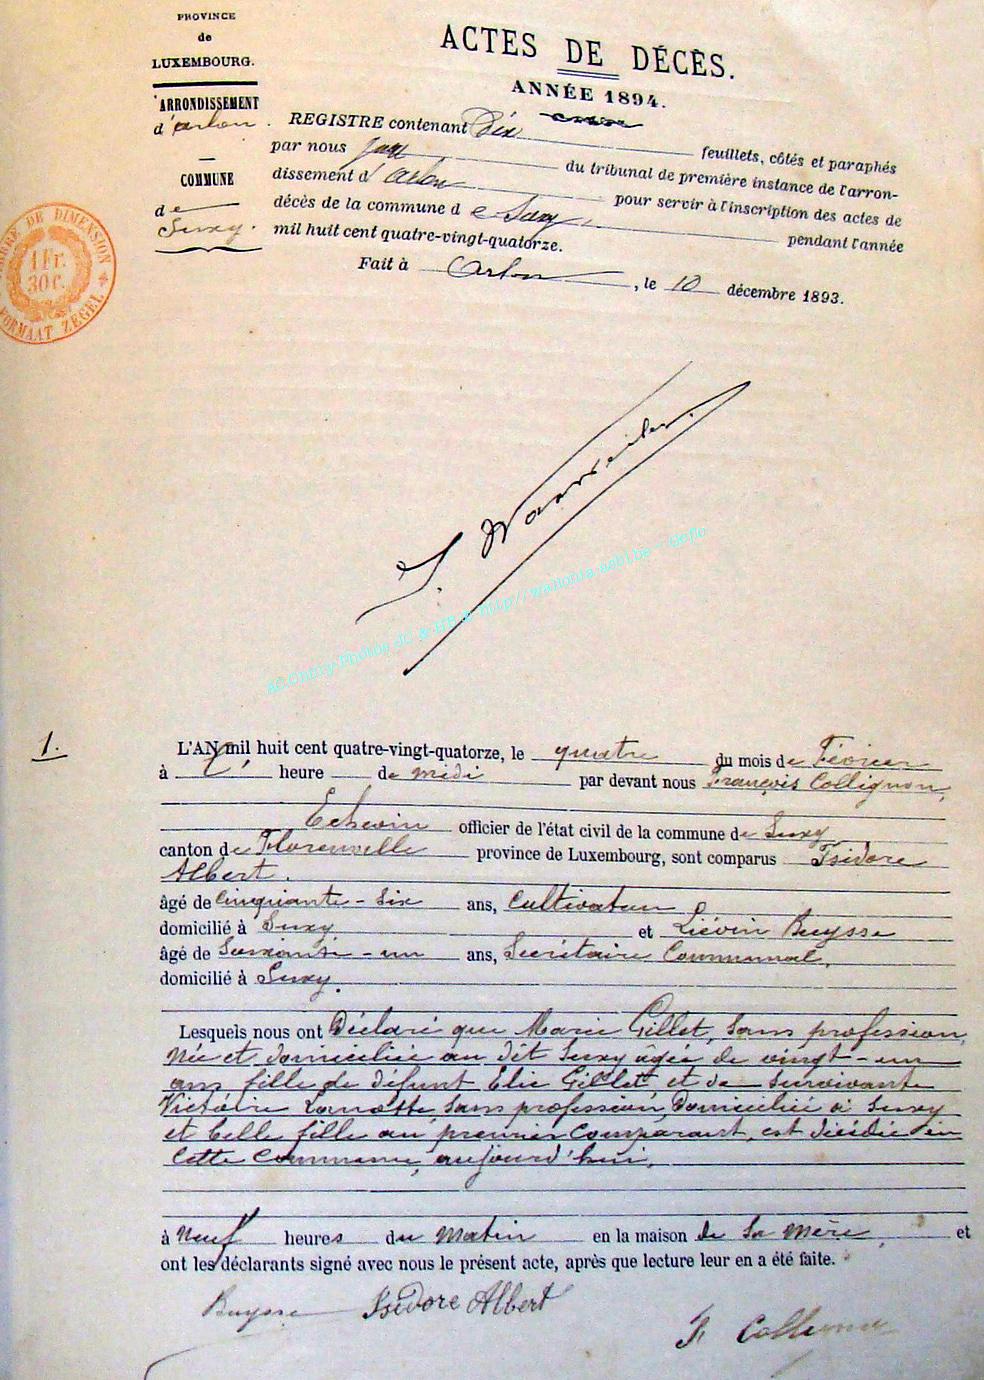 PROVINCE
de
LUXEMBOURG.
ARRONDISSEMENT
d'arlon.
COMMUNE
de
Suxy.
TIMBRE DE DIMENSION
1 Fr.
30 c.
FORMAAT ZEGEL
ACTES DE DÉCÈS.
ANNÉE 1894.
REGISTRE contenant Dix feuillets, côtés et paraphés
par nous du tribunal de première instance de l'arron-
dissement d'Arlon pour servir à l'inscription des actes de
décès de la commune de Suxy, pendant l'année
mil huit cent quatre-vingt-quatorze.
Fait à Arlon, le 10 décembre 1893.
AC Chiny-Photos JC & HB & http://wallonia-asbl.be - Geflo
1.
L'AN mil huit cent quatre-vingt-quatorze, le quatre du mois de Février
à heure de midi par devant nous François Collignon,
Echevin officier de l'état civil de la commune de Suxy
canton de Florenville province de Luxembourg, sont comparus Isidore
Albert.
âgé de cinquante-six ans, Cultivateur
domicilié à Suxy et Liévin Buysse
âgé de Soixante-un ans, Secrétaire Communal,
domicilié à Suxy.
Lesquels nous ont Déclaré que Marie Gillet, Sans profession,
Née et domiciliée au dit Suxy âgée de vingt-un
ans fille de défunt Elie Gillet et de Survivante
Victoire Lamotte, Sans profession, Domiciliée à Suxy
et belle fille au premier Comparant, est décédée en
Cette Commune, aujourd'hui,
à Neuf heures du Matin en la maison de Sa Mère, et
ont les déclarants signé avec nous le présent acte, après que lecture leur en a été faite.
Buysse Isidore Albert
F. Collignon